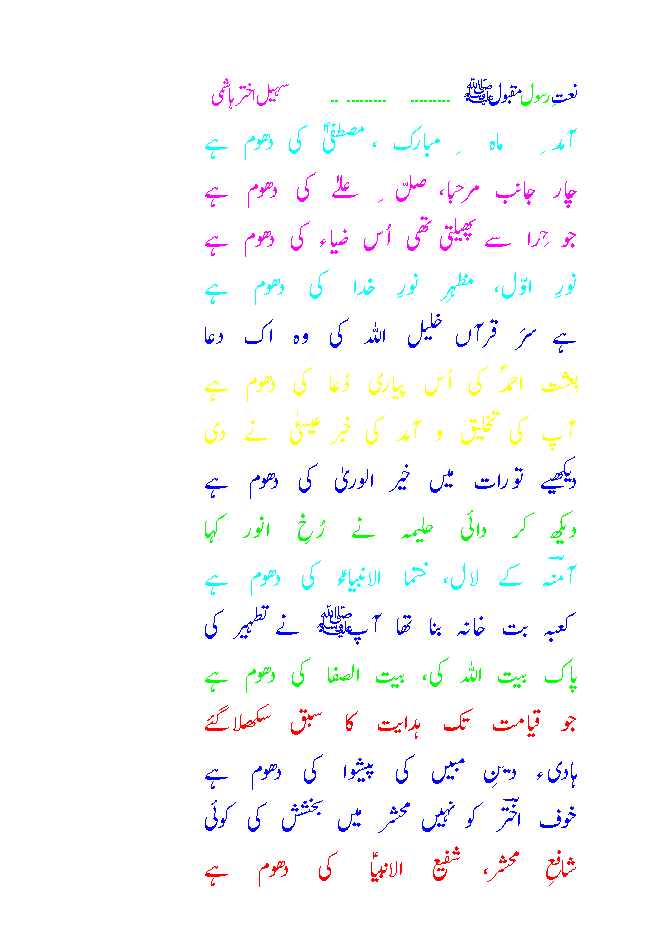 نعتِ رسول مقبول ﷺ ......... ......... .. سہیل اختر ہاشمی
آمد ِ ماہ ِ مبارک ، مصطفیٰؐ کی دھوم ہے
چار جانب مرحبا، صلّ ِ علےٰ کی دھوم ہے
جو حِرا سے پھیلتی تھی اُس ضیاء کی دھوم ہے
نورِ اوّل، مظہرِ نورِ خدا کی دھوم ہے
ہے سرَ قرآں خلیل اللہ کی وہ اک دعا
بعثت احمدؐ کی اُس پیاری دُعا کی دھوم ہے
آپ کی تخلیق و آمد کی خبر عیسیٰؑ نے دی
دیکھیے تورات میں خیر الوریٰ کی دھوم ہے
دیکھ کر دائی حلیمہ نے رُخِ انور کہا
آمنہؓ کے لال، ختما الانبیاءؐ کی دھوم ہے
کعبہ بت خانہ بنا تھا آپﷺ نے تطہیر کی
پاک بیت اللہ کی، بیت الصفا کی دھوم ہے
جو قیامت تک ہدایت کا سبق سکھلا گئے
ہادیء دینِ مبیں کی پیشوا کی دھوم ہے
خوف اخترؔ کو نہیں محشر میں بخشش کی کوئی
شافعِ محشر، شفیع الانبیاؐ کی دھوم ہے